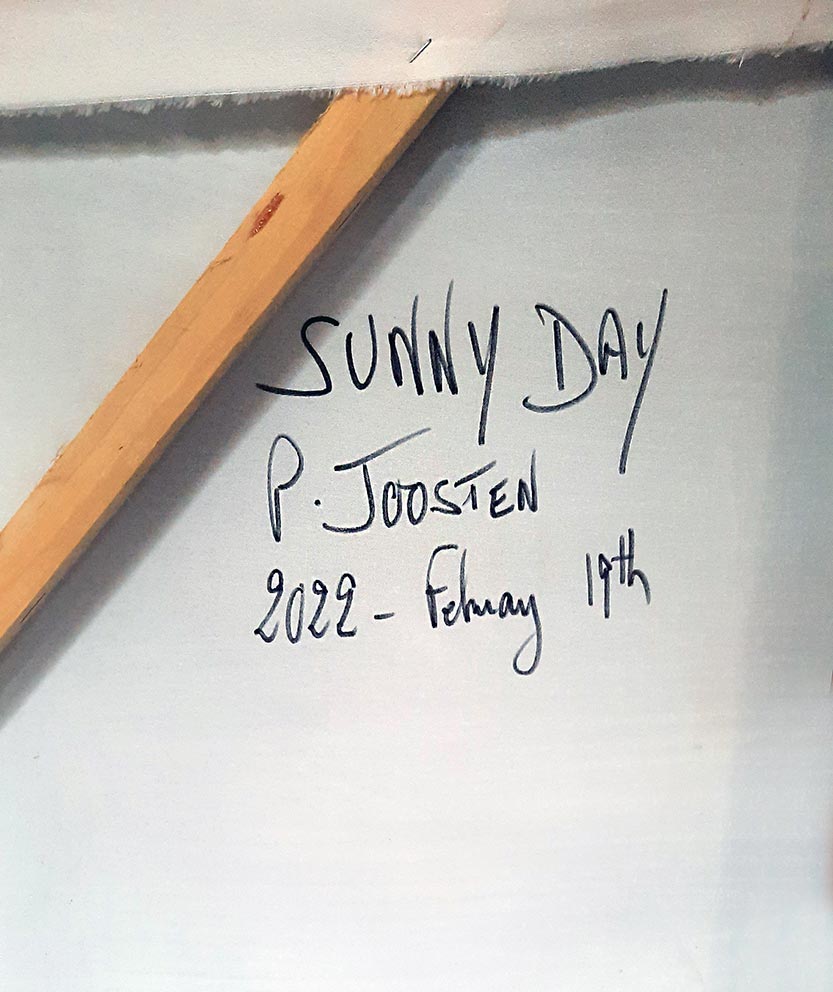 SUNNY DAY
P. JOOSTEN
2022 - February 19th